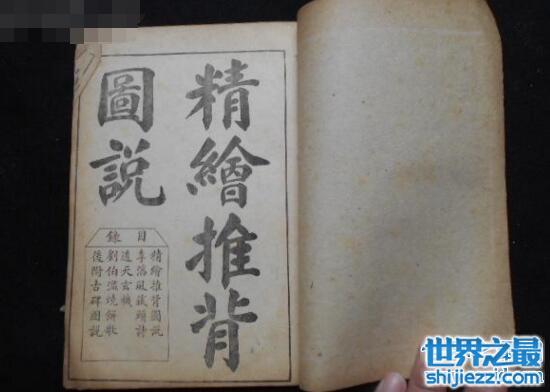 精繪推背
圖說
目錄
精繪推背圖説
李淳風藏頭詩
透天玄機
劉伯温燒餅歌
後附古碑圖説
世界之最
shijiezz.com